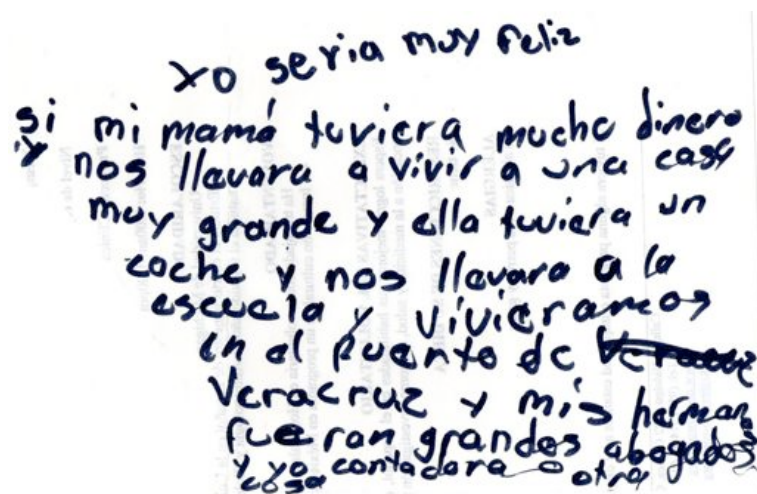 Yo seria muy feliz
si mi mamá tuviera mucho dinero
y nos llevara a vivir a una casa
muy grande y ella tuviera un
coche y nos llevara a la
escuela y vivieramos
en el puerto de
Veracruz y mis hermanos
fueran grandes abogados
y yo contadora o otra
cosa